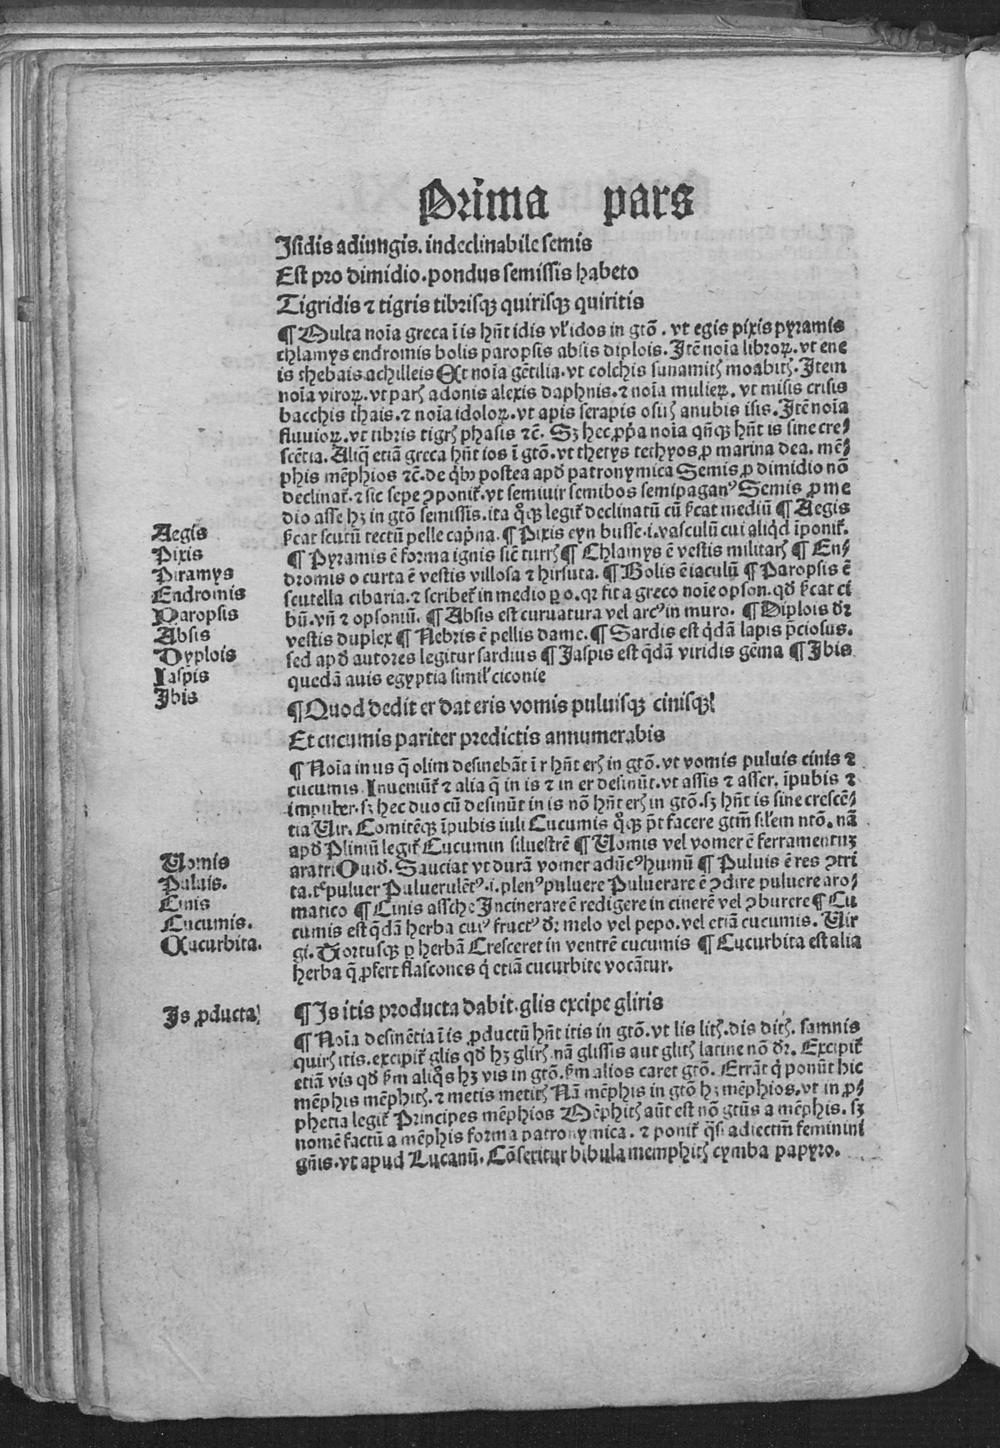 Prima pars
Isidis adiungis. indeclinabile semis
Est pro dimidio. pondus semissis habeto
Tigridis ⁊ tigris tibrisqꝫ quirisqꝫ quiritis
¶ Multa noīa greca ī is hn̄t idis vl' idos in gtō. vt egis pixis pyramis
chlamys endromis bolis paropsis absis diplois. Itē noīa libroꝝ. vt ene
is thebais achilleis Et noīa gētilia. vt colchis sunamitꝭ moabitꝭ. Item
noīa viroꝝ. vt parꝭ adonis alexis daphnis. ⁊ noīa mulieꝝ. vt misis crisis
bacchis thais. ⁊ noīa idoloꝝ. vt apis serapis osirꝭ anubis isis. Itē noīa
fluuioꝝ. vt tibris tigrꝭ phasis ⁊c̄. Sꝫ hec ꝓp̄a noīa qn̄qꝫ hn̄t is sine cre⸗
scētia. Aliq̄ etiā greca hn̄t ios ī gtō. vt thetys tethyos ꝓ marina dea. mē⸗
phis mēphios ⁊c̄. de q̇bꝫ postea apd̓ patronymica Semis ꝓ dimidio nō
declinat᷑. ⁊ sic sepe ꝯponit᷑. vt semiuir semibos semipaganꝰ Semis ꝓ me
dio asse hꝫ in gtō semissis. ita qͦqꝫ legit᷑ declinatū cū s̓cat mediū ¶ Aegis
s̓cat scutū tectū pelle capͥna. ¶ Pixis eyn busse .i. vasculū cui aliqͥd īponit᷑.
¶ Pyramis ē forma ignis sic̄ turrꝭ ¶ Chlamys ē vestis militarꝭ ¶ En⸗
dromis o curta ē vestis villosa ⁊ hirsuta. ¶ Bolis ē iaculū ¶ Paropsis ē
scutella cibaria. ⁊ scribet᷑ in medio ꝑ o. qꝛ fit a greco noīe opson. qd̓ s̓cat ci
bū. vn̄ ⁊ opsoniū. ¶ Absis est curuatura vel arcꝰ in muro. ¶ Diplois dr̄
vestis duplex ¶ Nebris ē pellis dame. ¶ Sardis est qͥdā lapis p̄ciosus.
sed apd̓ autores legitur sardius ¶ Jaspis est qͥdā viridis gēma ¶ Ibis
quedā auis egyptia simil' ciconie
Aegis
Pixis
Piramys
Endromis
Paropsis
Absis
Dyplois
Iaspis
Ibis
¶ Quod dedit er dat eris vomis puluisqꝫ cinisqꝫ
Et cucumis pariter predictis annumerabis
¶ Noīa in us q̄ olim desinebāt ī r hn̄t erꝭ in gtō. vt vomis puluis cinis ⁊
cucumis. Inueniūt᷑ ⁊ alia q̄ in is ⁊ in er desinūt. vt assis ⁊ asser. īpubis ⁊
impuber. sꝫ hec duo cū desinūt in is nō hn̄t erꝭ in gtō. sꝫ hn̄t is sine crescē⸗
tia Vir. Comitēqꝫ īpubis iuli Cucumis qͦqꝫ p̄t facere gtm̄ sil'em ntō. nā
apd̓ Pliniū legit᷑ Cucumin siluestrē ¶ Vomis vel vomer ē ferramentuꝫ
aratri Ouid̓. Sauciat vt durā vomer adūcꝰ humū ¶ Puluis ē res ꝯtri
ta. et̓ puluer Puluerulētꝰ .i. plenꝰ puluere Puluerare ē ꝯdire puluere aro⸗
matico ¶ Cinis assche Incinerare ē redigere in cinerē vel ꝯburere ¶ Cu
cumis est qͥdā herba cuiꝰ fructꝰ dr̄ melo vel pepo. vel etiā cucumis. Vir
gi. Tortusqꝫ ꝑ herbā Cresceret in ventrē cucumis ¶ Cucurbita est alia
herba q̄ ꝓfert flascones q̇ etiā cucurbite vocātur.
Vomis
Puluis.
Cinis
Cucumis.
Cucurbita.
Is ꝓducta
¶ Is itis producta dabit. glis excipe gliris
¶ Noīa desinētia ī is ꝓductū hn̄t itis in gtō. vt lis litꝭ. dis ditꝭ. samnis
quirꝭ itis. excipit᷑ glis qd̓ hꝫ glirꝭ. nā glissis aut glitꝭ latine nō dr̄. Excipit᷑
etiā vis qd̓ s̓m aliqͦs hꝫ vis in gtō. s̓m alios caret gtō. Errāt q̇ ponūt hic
mēphis mēphitꝭ. ⁊ metis metitꝭ Nā mēphis in gtō hꝫ mēphios. vt in ꝓ⸗
phetia legit᷑ Principes mēphios Mēphitꝭ aūt est nō gtūs a mēphis. sꝫ
nomē factū a mēphis forma patronymica. ⁊ ponit᷑ q̄si adiectm̄ feminini
gn̄is. vt apud Lucanū. Cōseritur bibula memphitꝭ cymba papyro.